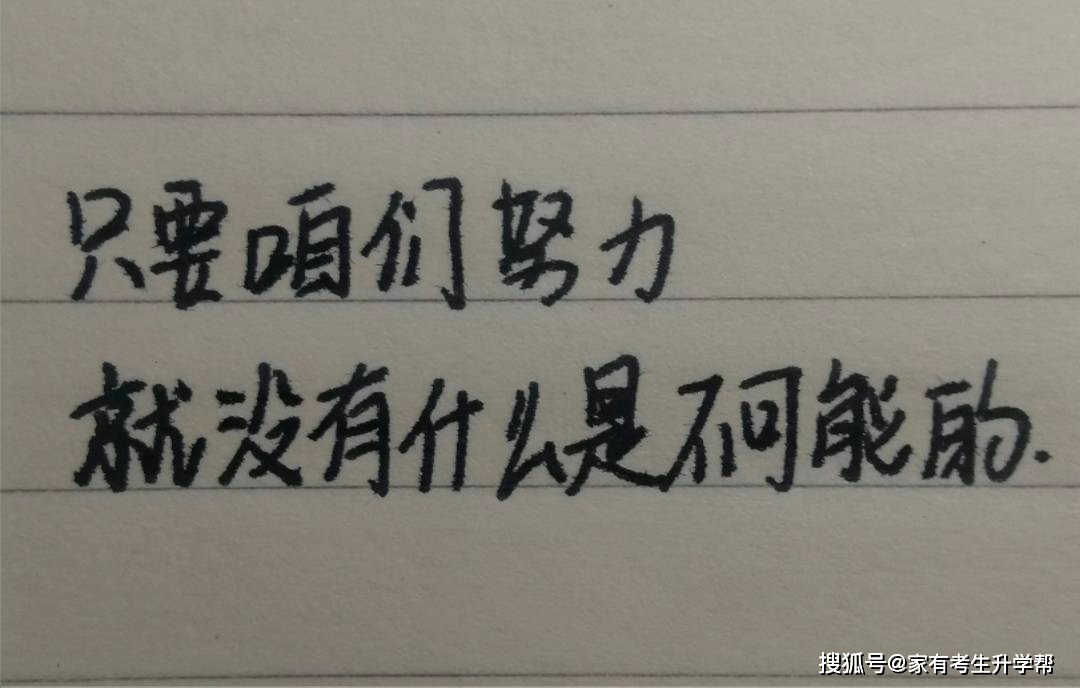 只要咱们努力
就没有什么是不可能的.
搜狐号@家有考生升学帮